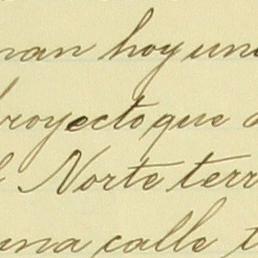 man hoy una
proyecto que
l Norte terr
una calle t